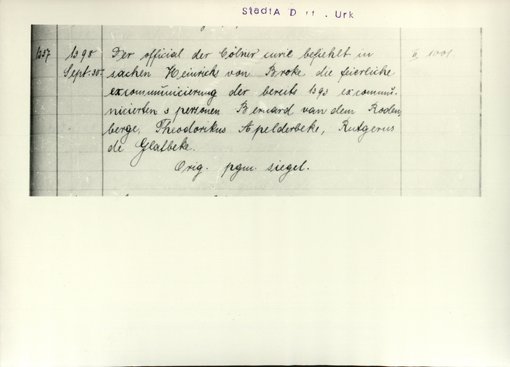 StadtA D Urk
1357 1398 Der official der Cölner curie befiehlt in
Sept. 25. sachen Heinrich von Broke die feierliche
excommunicierung der bereits 1393 excommu-
nicierten 3 personen Bernard van dem Roden
berge, Theodorikus Apelderbeke, Rutgerus
de Glatbeke.
Orig. pgm siegel.